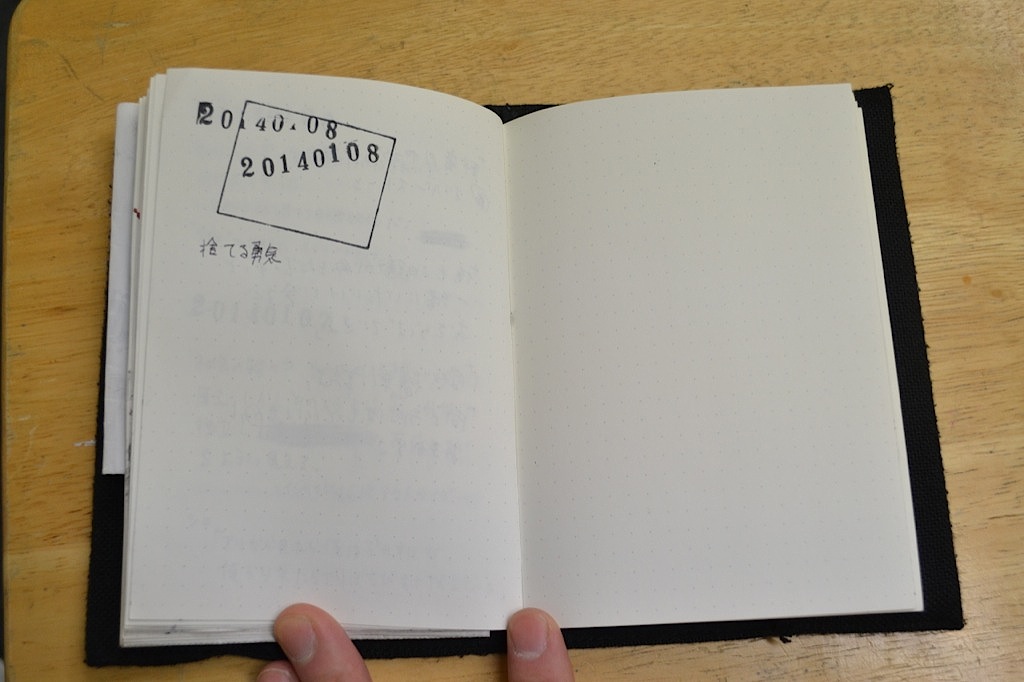 20140108
20140108
捨てる勇気